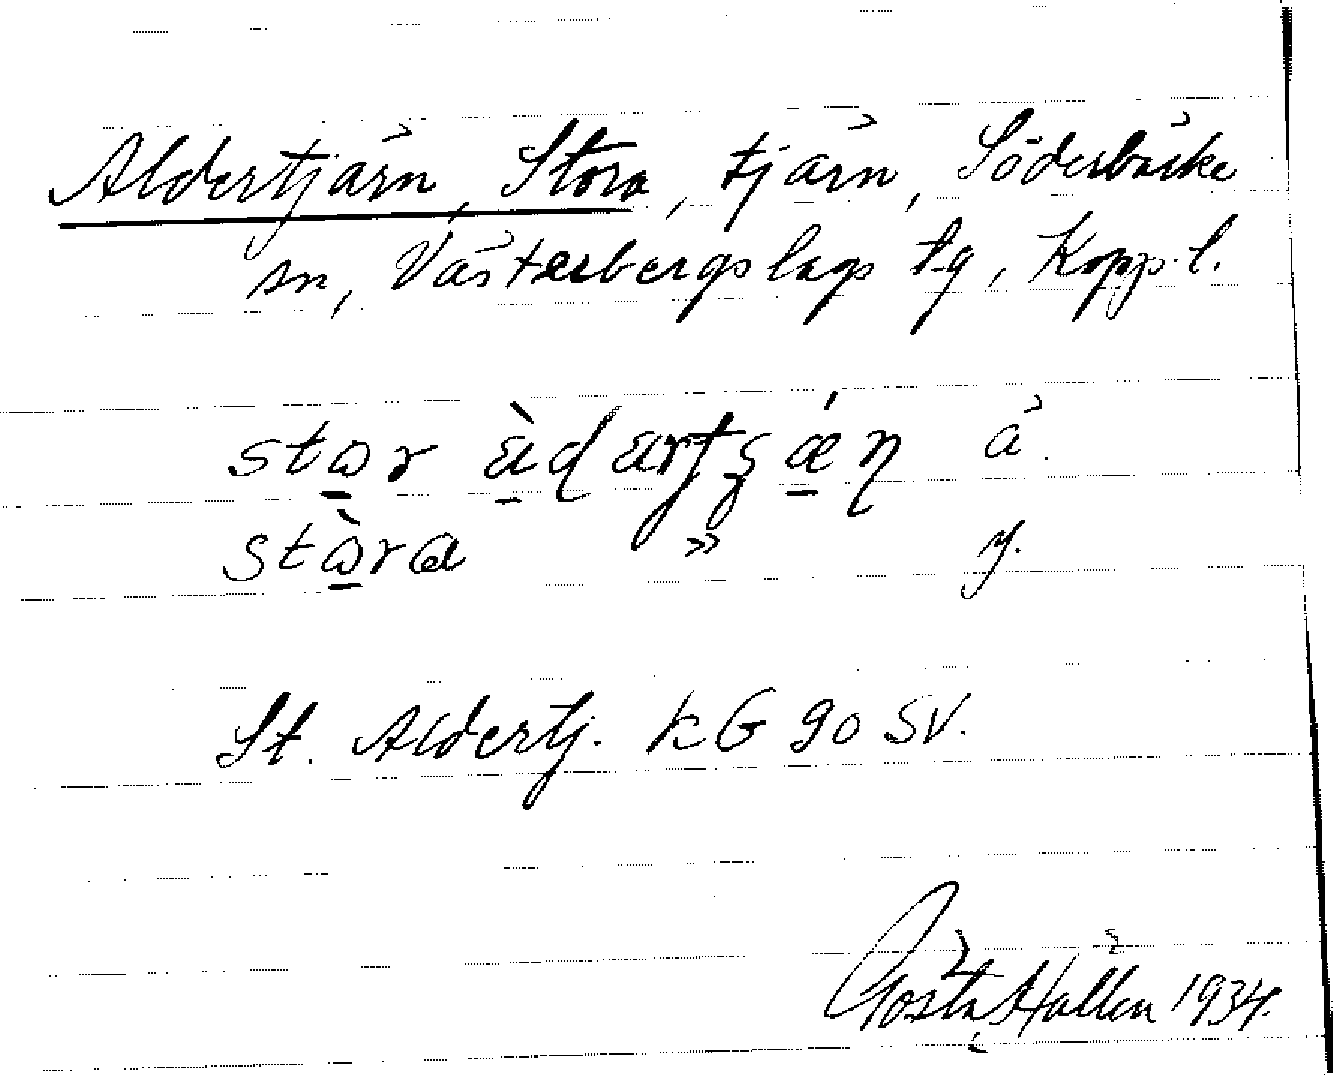 Aldertjärn, Stora, tjärn, Söderbärke
sn, Västerbergslags tg, Kopp. l.
ä.
stòra » y.
St. Aldertj. kG 90 SV.
Gösta Hallén 1934.